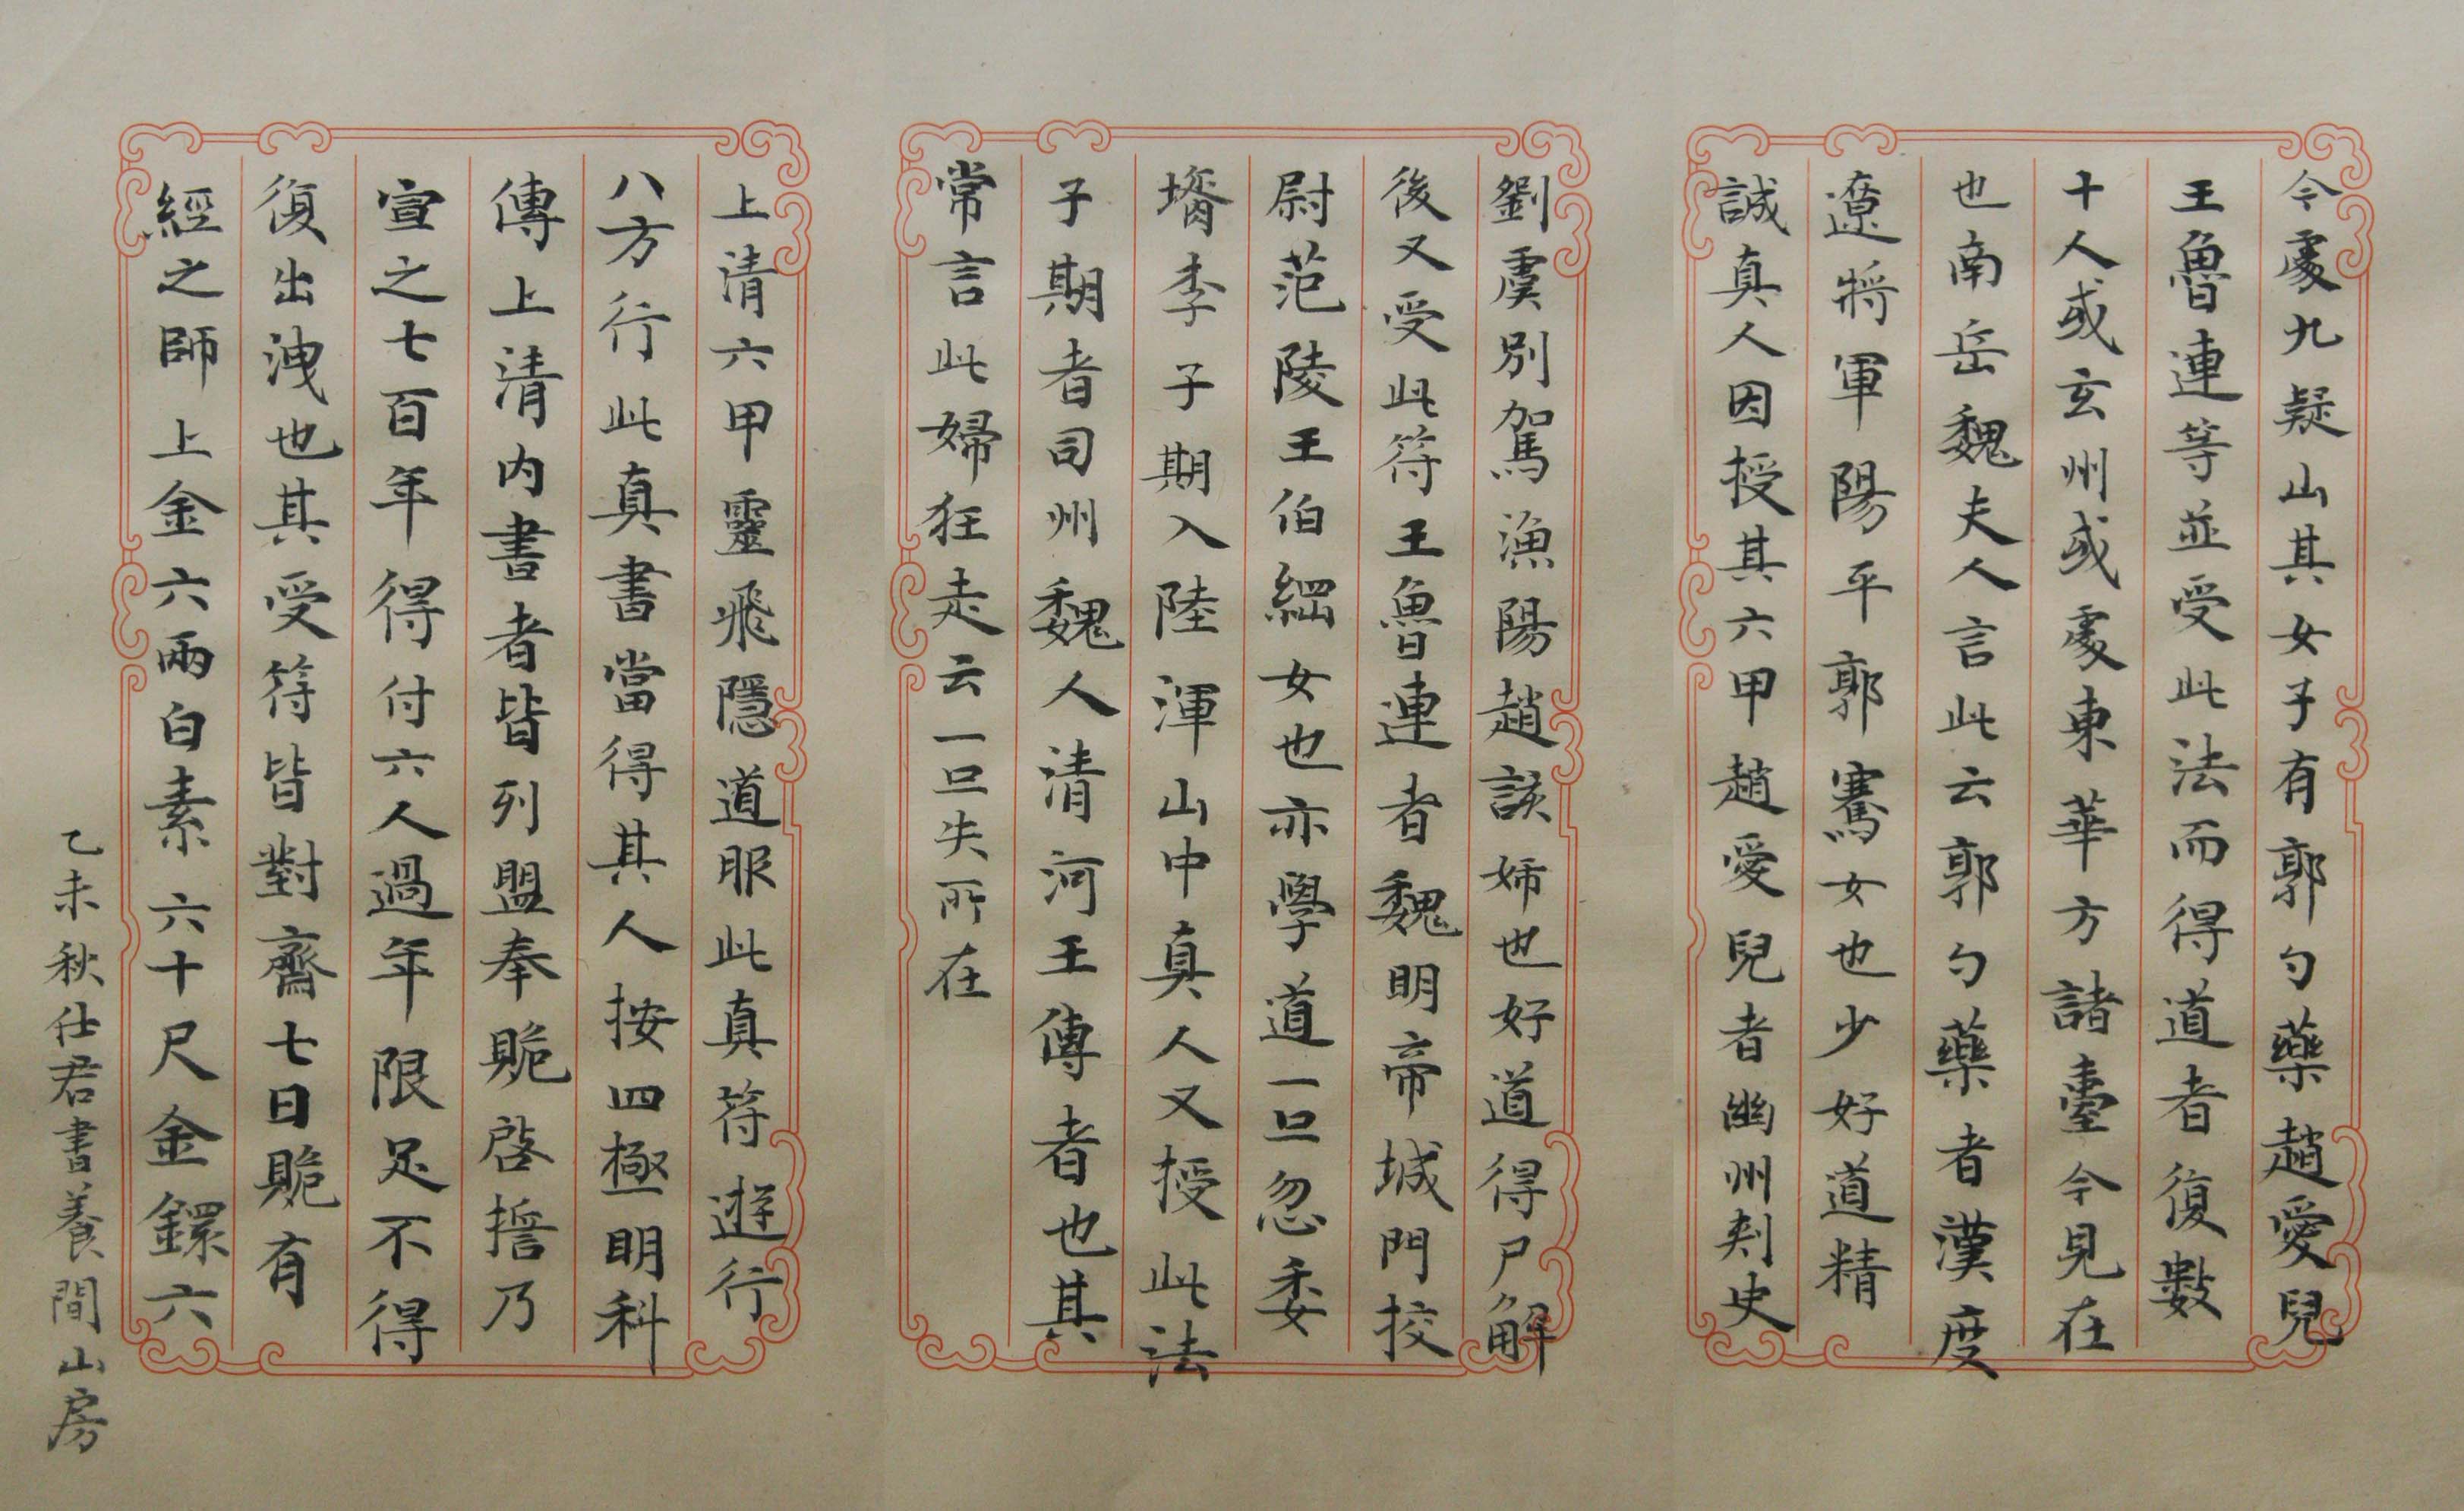 今處九疑山其女子有郭勺藥趙愛兒
王魯連等並受此法而得道者復數
十人或玄州或處東華方諸臺今見在
也南岳魏夫人言此云郭勺藥者漢度
遼將軍陽平郭騫女也少好道精
誠真人因授其六甲趙愛兒者幽州刾史
劉虞別駕漁陽趙該姊也好道得尸解
後又受此符王魯連者魏明帝城門挍
尉范陵王伯綱女也亦學道一旦忽委
壻李子期入陸渾山中真人又授此法
子期者司州魏人清河王傳者也其
常言此婦狂走云一旦失所在
上清六甲靈飛隱道服此真符遊行
八方行此真書當得其人按四極明科
傳上清内書者皆列盟奉贎啓擔乃
宣之七百年得付六人過年限足不得
復出洩也其受符皆對齋七日贎有
經之師上金六兩白素六十尺金鐶六
乙未秋仕君書養閒山房